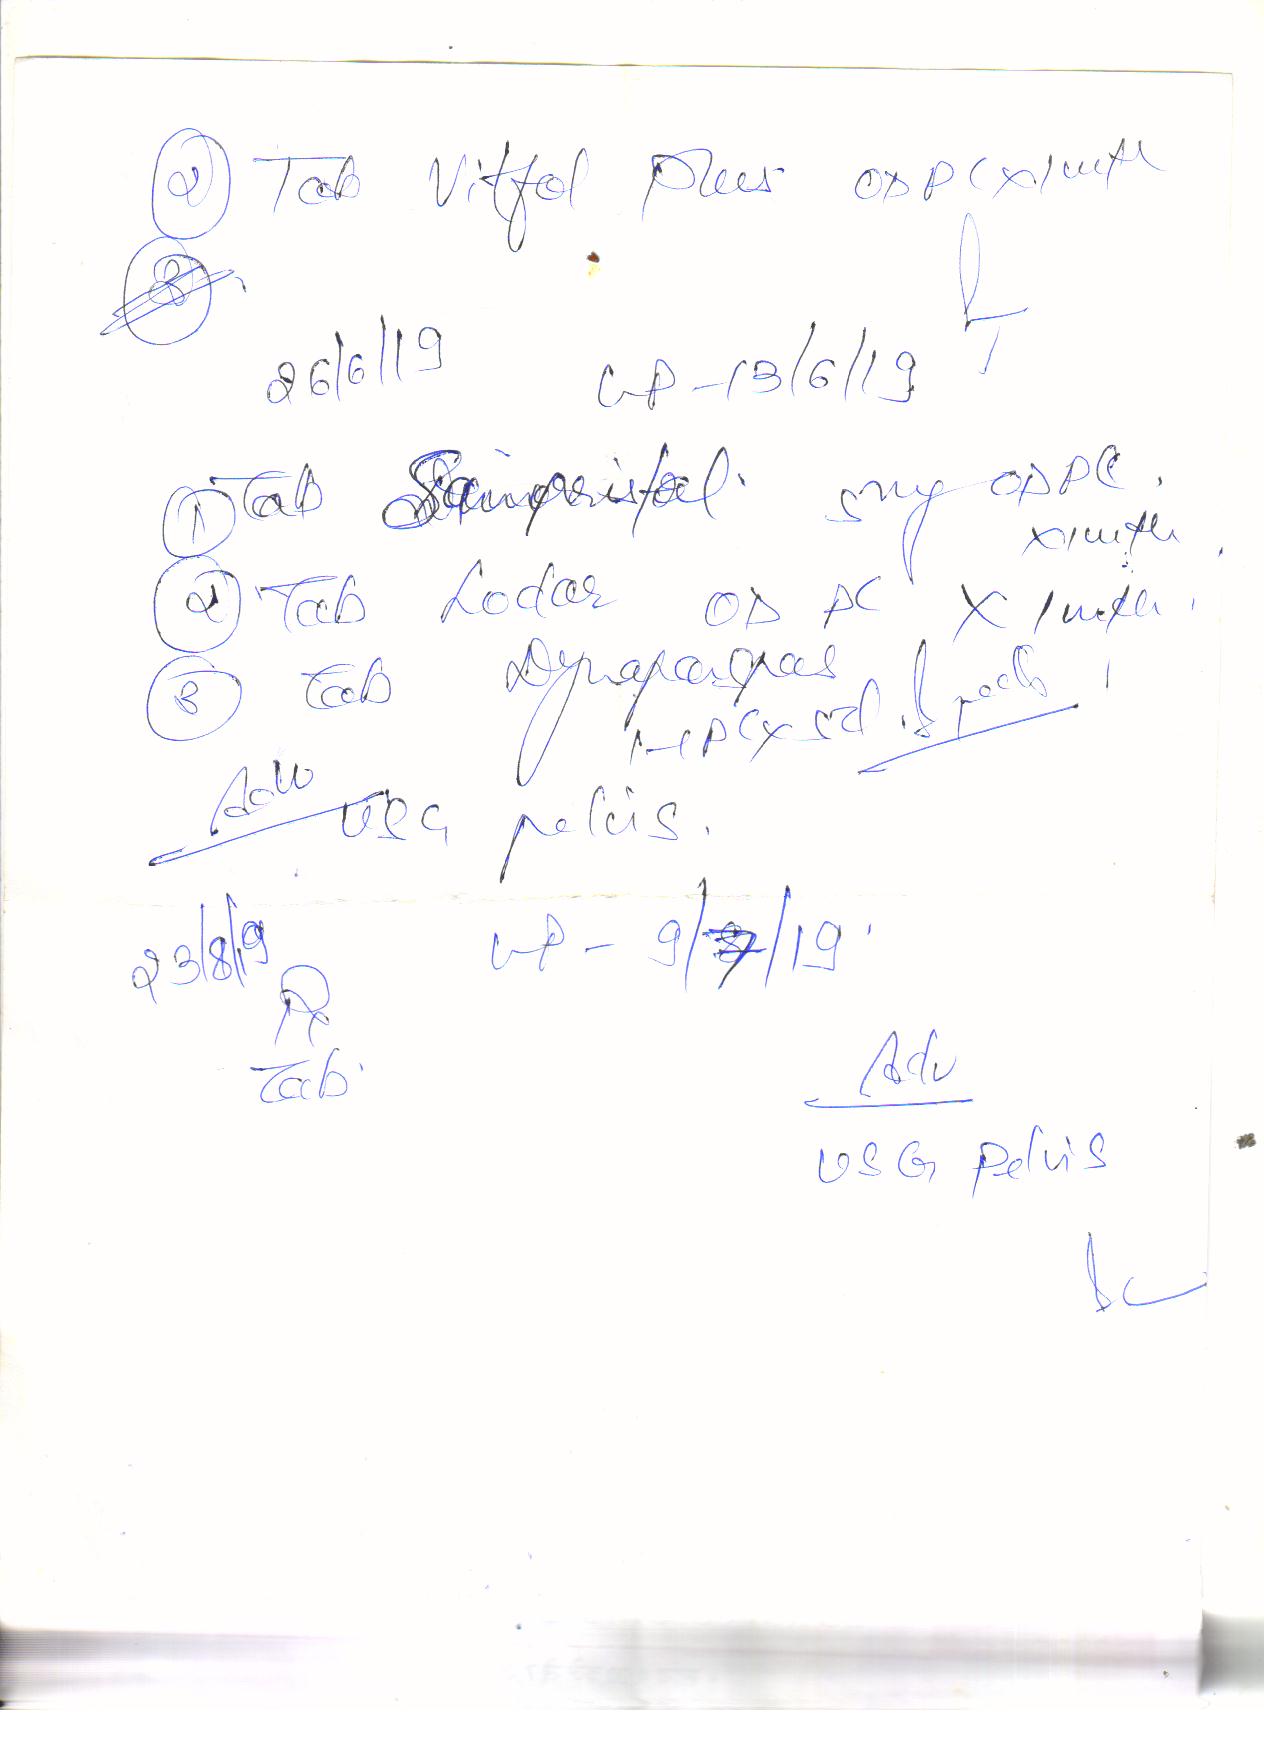 ② Tab Vitfol Plus OD PC x 1 mth
26/6/19 LMP - 13/6/19
① Tab 5mg OD PC.
x 1 mth
② Tab Lodar OD PC x 1 mth.
③ Tab
PC x 5d
Adv
USG pelvis.
23/8/19 LMP - 9/ /19
Rx
Tab.
Adv
USG Pelvis